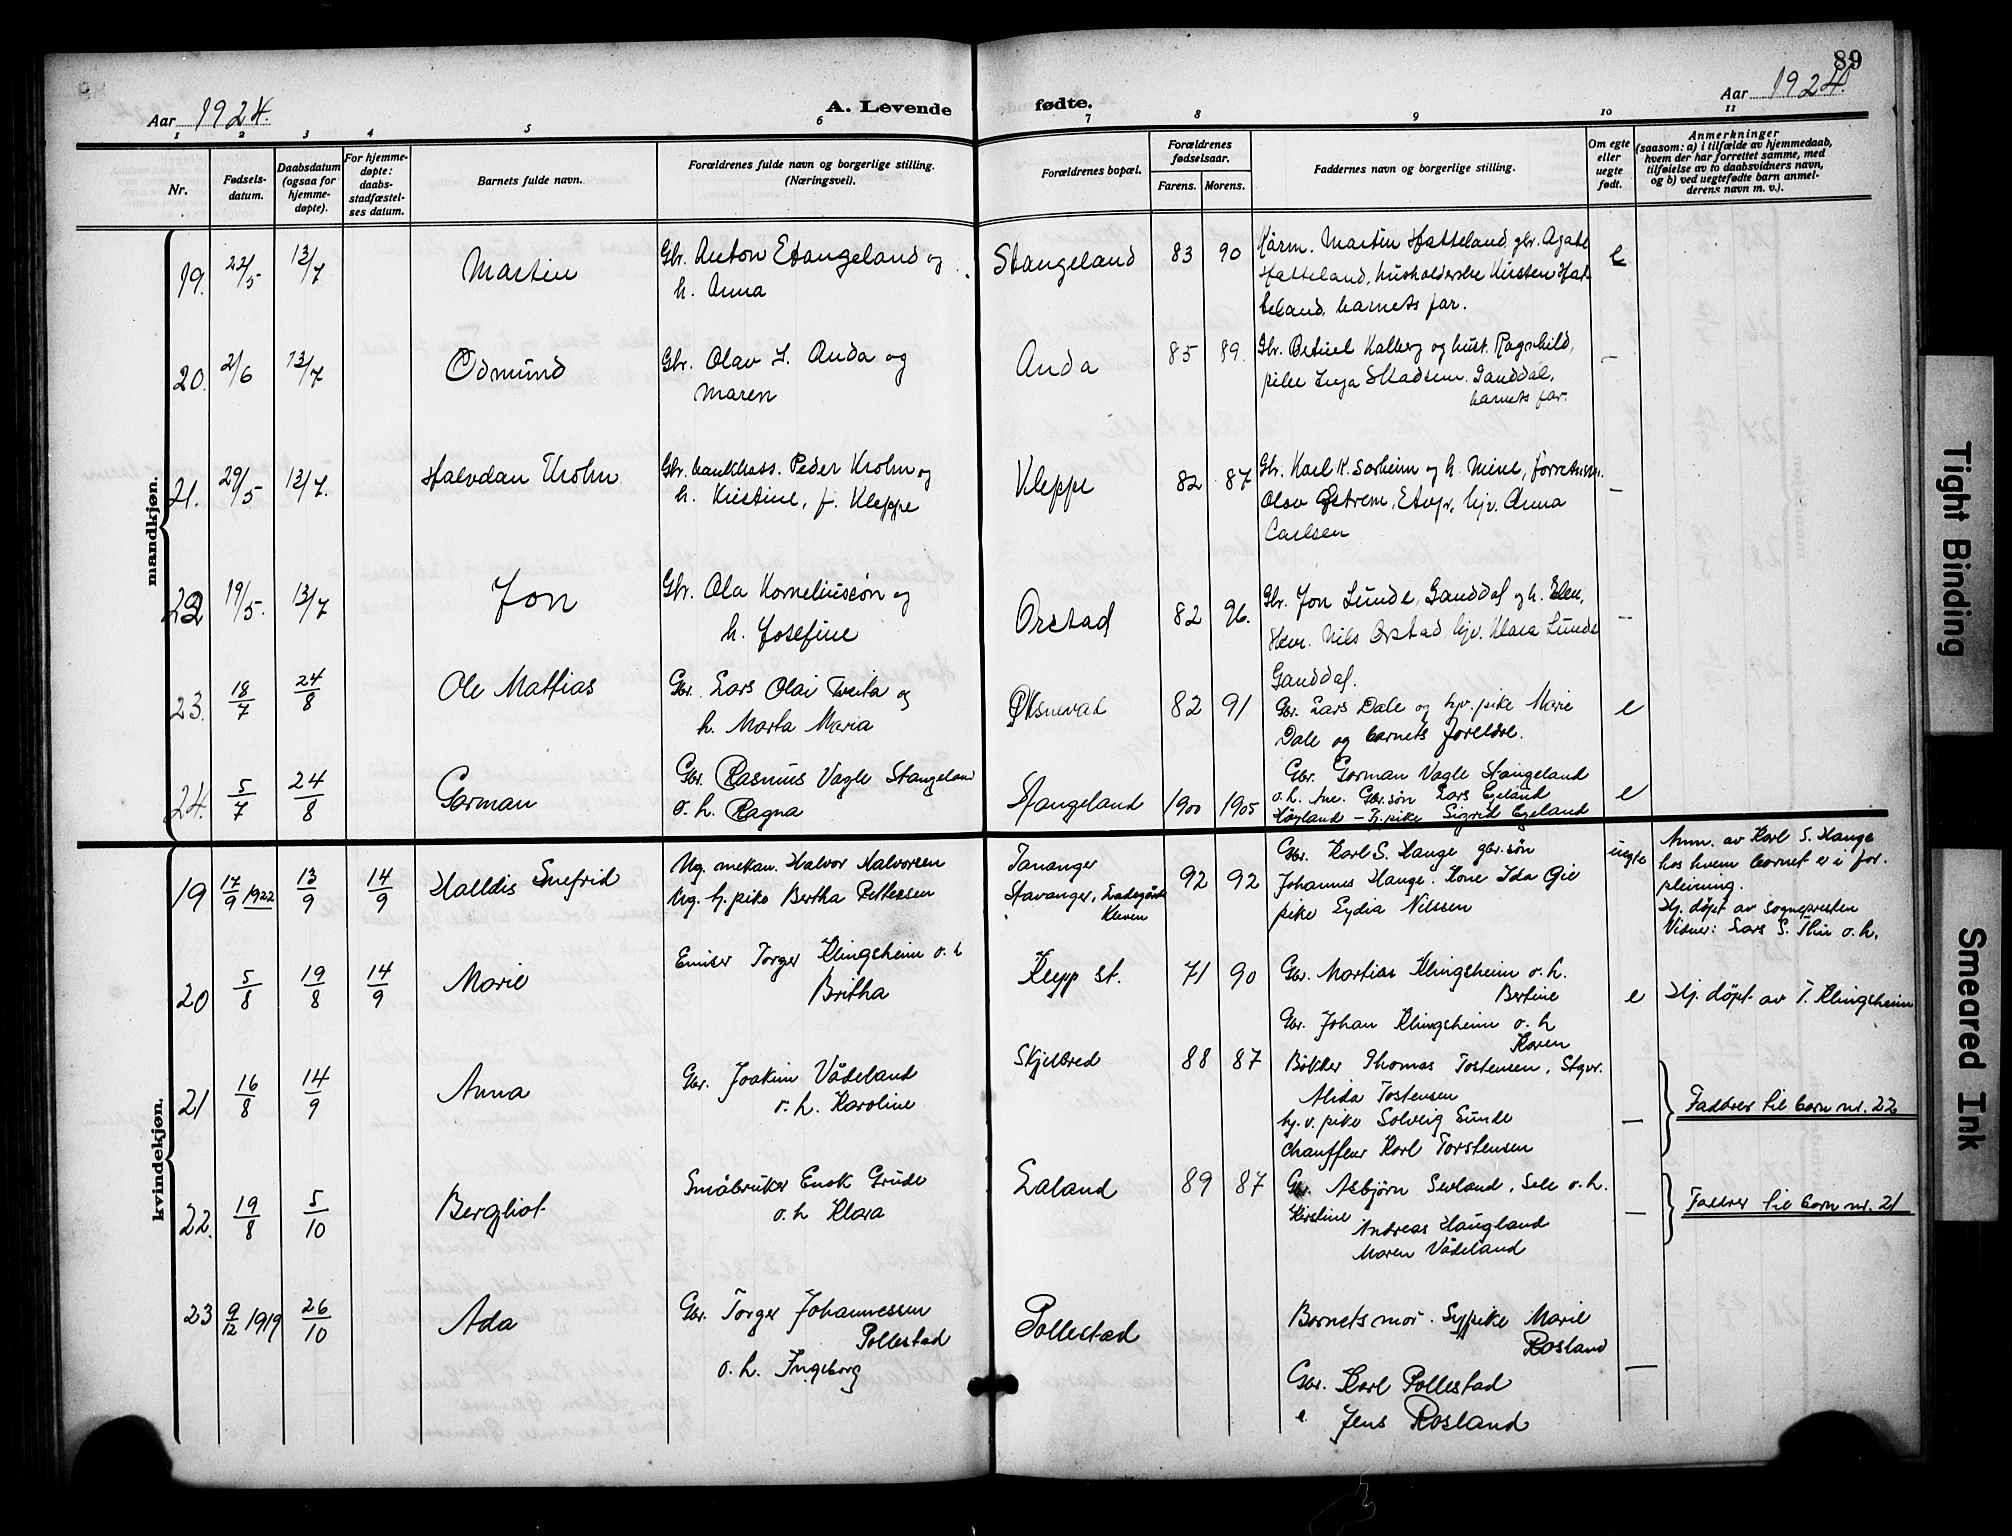 89
Aar 1924. A. Levende fødte. Aar 1924.
1 2 3 4 5 6 7 8 9 10 11
Nr.
Fødsels-
datum.
Daabsdatum
(ogsaa for
hjemme-
døpte).
For hjemme-
døpte:
daabs-
stadfæstel-
ses datum.
Barnets fulde navn.
Forældrenes fulde navn og borgerlige stilling.
(Næringsvei).
Forældrenes bopæl.
Forældrenes
fødselsaar.
Farens. Morens.
Faddernes navn og borgerlige stilling.
Om egte
eller
uegte
født.
Anmerkninger
(saasom: a) i tilfælde av hjemmedaab,
hvem der har forrettet samme, med
tilføielse av to daabsvidners navn,
og b) ved uegtefødte barn anmel-
derens navn m. v.).
mandkjøn.
19. 22/5 13/7 Martin
Gbr. Anton Stangeland og
h. Anna
Stangeland 83 90
Martin Hatteland, gbr. Agate
Hatteland, husholderske Kirsten Hat-
teland, barnets far.
e
20. 2/6 13/7 Odmund
Gbr. Olav L. Anda og
Maren
Anda 85 89.
Gbr. Kalberg og hust. Ragnhild,
pike Inga Madsen. Ganddal,
barnets far.
—
21. 29/5 13/7. Halvdan Krohn
Gbr. bankkass. Peder Krohn og
h. Kristine, f. Kleppe
Kleppe 82 87
Gbr. Karl K. Sørheim og h. Mine, forretnsm.
Olav Østrem, Stvgr, hjv. Anna
Carlsen
—
22 19/5. 13/7 Jon
Gbr. Ola Korneliussøn og
h. Josefine
Orstad 82 96.
Gbr. Jon Lunde, Ganddal og h. Elen,
Nils Orstad, hjv. Klara Lunde
Ganddal.
—
23. 18/7 24/8 Ole Mattias
Gbr. Lars Olai Tveita og
h. Marta Maria
Øksnevad 82 91
Gbr. Lars Dale og hjv. pike Marie
Dale og barnets foreldre.
e
24. 5/7 24/8 Gorman
Gbr. Rasmus Vagle Stangeland
o. h. Ragna
Stangeland 1900 1905
Gbr. Gorman Vagle Stangeland
o. h. Ane. Gbr.søn Lars Egeland
Høyland – h. pike Sigrid Egeland
e
kvindekjøn.
19 17/9 1922 13/9 14/9 Halldis Snefrid
Ug. mekan. Halvor Halvorsen
Ug. hj. pike Bertha Pettersen
Tananger
Stavanger, Ladegård
Kleven
92 92
Gbr. Karl S. Hauge gbr. søn
Johannes Hauge. Kone Ida Gie
pike Lydia Nilssen
uegte
Anm. av Karl S. Hauge
hos hvem barnet er i for-
pleining.
Hj. døpt av sognepresten
Vidner: Lars S. Thu o. h.
20 5/8 19/8 14/9 Marie
Torger Klingsheim o. h
Britha
Klepp st. 71 90
Gbr. Martias Klingsheim o. h.
Bertine
Gbr. Johan Klingsheim o. h
Karen
e
Hj. døpt av T. Klingsheim
21 16/8 14/9 Anna
Gbr. Joakim Vådeland
o. h. Karoline
Skjelbred 88 87
Bøkker Thomas Tostensen, Stgvr.
Alida Tostensen
hj. v. pike Solveig Lunde
Chauffeur Karl Torstensen
—
Faddrer til barn nr. 22
22. 19/8 5/10 Bergliot
Småbruker Enok Grude
o. h Klara
Laland 89 87
Gbr. Asbjørn Sevland, Sele o. h.
Kirstine
Andreas Haugland
Maren Vådeland
—
Faddrer til barn nr. 21
23 9/12 1919 26/10 Ada
Gbr. Torger Johannessen
Pollestad
o. h. Ingeborg
Pollestad
Barnets mor. Sypike Marie
Rosland
Gbr. Karl Pollestad
" Jens Rosland
—
Tight Binding
Smeared Ink